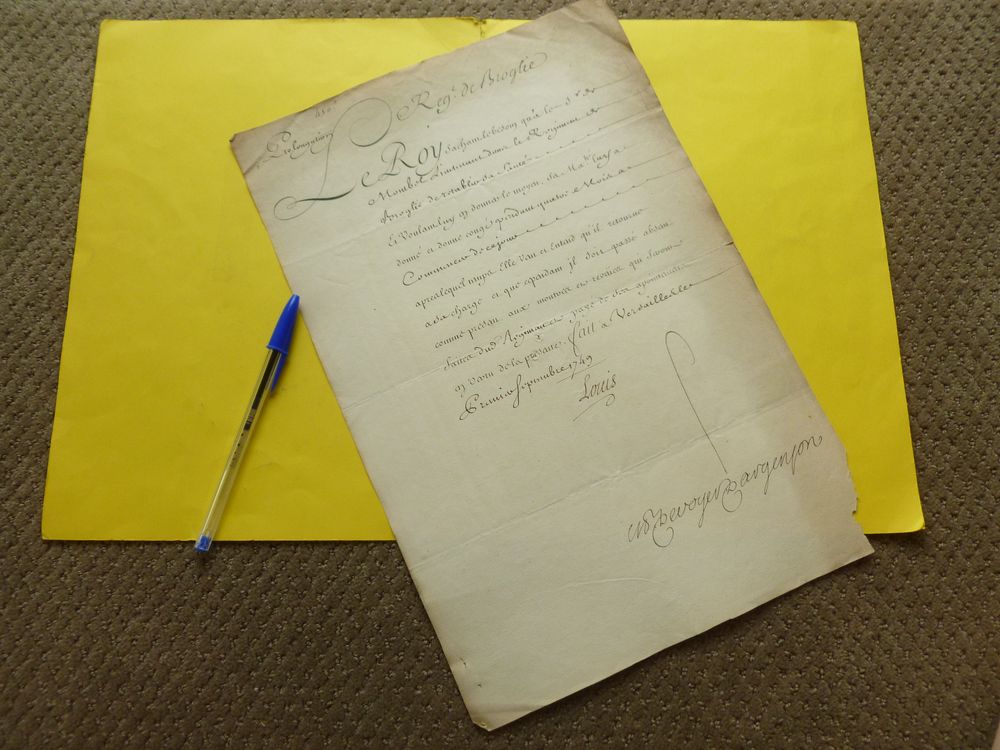 Reg.t de Broglie
Prolongation
Le Roy sachant le besoin qu'a le S.r de
Lieutenant dans le Regiment de
Broglie de rétablir sa Santé
Et Voulant luy en donner le moyen, Sa Ma.té luy a
donné et donne congé pendant quatre Mois a
Commencer de ce jour
aprez lequel temps Elle Veut et Entend qu'il retourne
a sa charge et que cependant il soit passé absent
comme present aux montres et reveües qui seront
faites dud. Regiment et payé de ses apointemens
en vertu de la presente. fait a Versailles le
Premier Septembre 1749
Louis
M. De voyer D'argenson